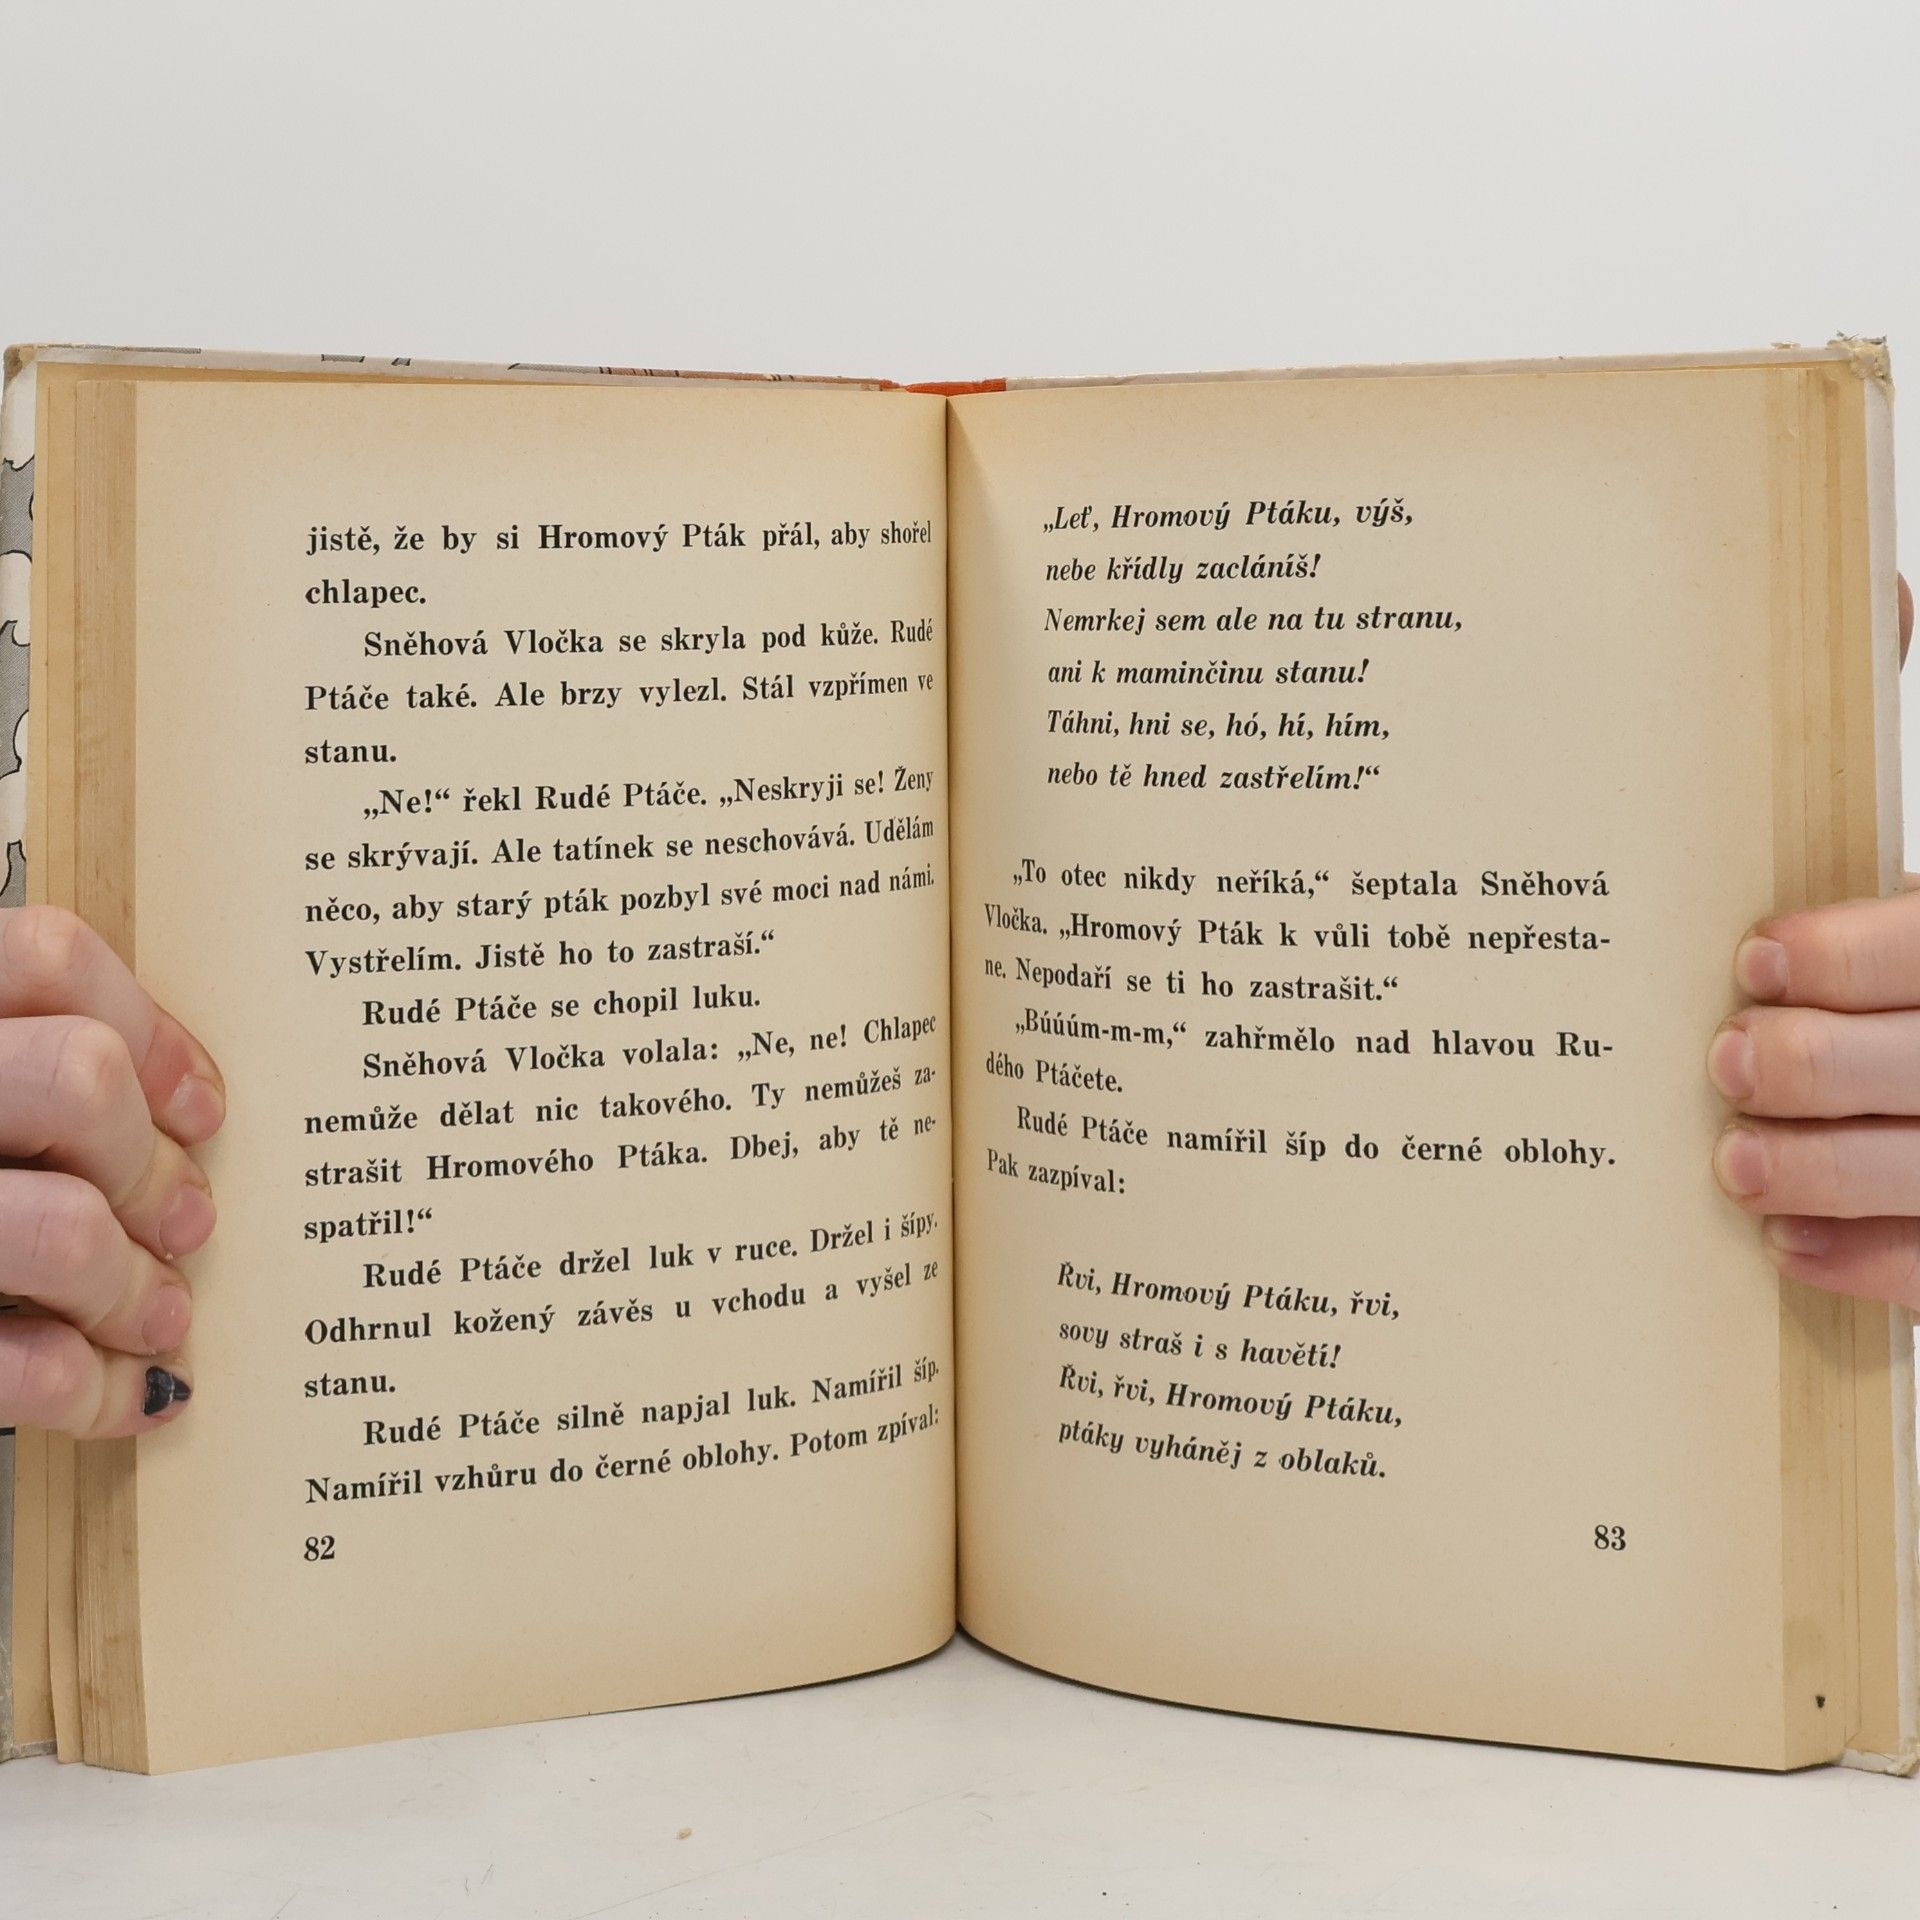 jistě, že by si Hromový Pták přál, aby shořel
chlapec.
Sněhová Vločka se skryla pod kůže. Rudé
Ptáče také. Ale brzy vylezl. Stál vzpřímen ve
stanu.
„Ne!“ řekl Rudé Ptáče. „Neskryji se! Ženy
se skrývají. Ale tatínek se neschovává. Udělám
něco, aby starý pták pozbyl své moci nad námi.
Vystřelím. Jistě ho to zastraší.“
Rudé Ptáče se chopil luku.
Sněhová Vločka volala: „Ne, ne! Chlapec
nemůže dělat nic takového. Ty nemůžeš za-
strašit Hromového Ptáka. Dbej, aby tě ne-
spatřil!“
Rudé Ptáče držel luk v ruce. Držel i šípy.
Odhrnul kožený závěs u vchodu a vyšel ze
stanu.
Rudé Ptáče silně napjal luk. Namířil šíp.
Namířil vzhůru do černé oblohy. Potom zpíval:
82
„Leť, Hromový Ptáku, výš,
nebe křídly zacláníš!
Nemrkej sem ale na tu stranu,
ani k maminčinu stanu!
Táhni, hni se, hó, hí, hím,
nebo tě hned zastřelím!“
„To otec nikdy neříká,“ šeptala Sněhová
Vločka. „Hromový Pták k vůli tobě nepřesta-
ne. Nepodaří se ti ho zastrašit.“
„Búúúm-m-m,“ zahřmělo nad hlavou Ru-
dého Ptáčete.
Rudé Ptáče namířil šíp do černé oblohy.
Pak zazpíval:
Řvi, Hromový Ptáku, řvi,
sovy straš i s havětí!
Řvi, řvi, Hromový Ptáku,
ptáky vyháněj z oblaků.
83